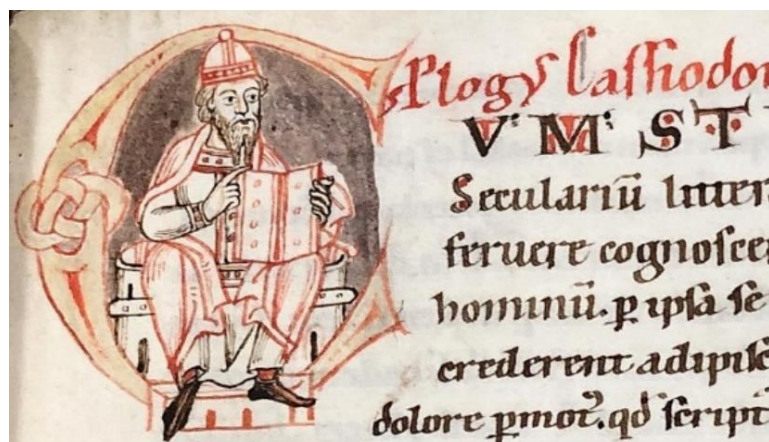 Plogꝰ Cassiodori
VM STV
Seculariū litter
feruere cognosce
hominū. ꝑ ipsā se
crederent adipisc
dolore ꝑmotꝰ. qđ script